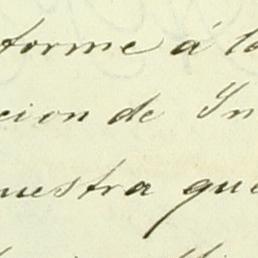 forme á la
cion de In
uestra que